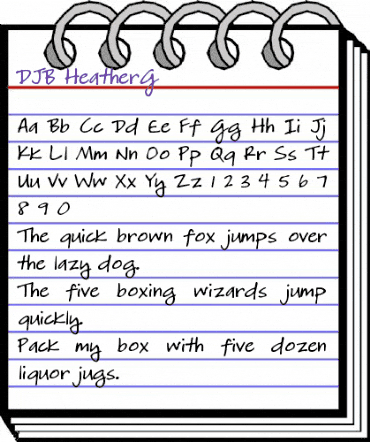 DJB HeatherG
Aa Bb Cc Dd Ee Ff Gg Hh Ii Jj
Kk Ll Mm Nn Oo Pp Qq Rr Ss Tt
Uu Vv Ww Xx Yy Zz 1 2 3 4 5 6 7
8 9 0
The quick brown fox jumps over
the lazy dog.
The five boxing wizards jump
quickly.
Pack my box with five dozen
liquor jugs.